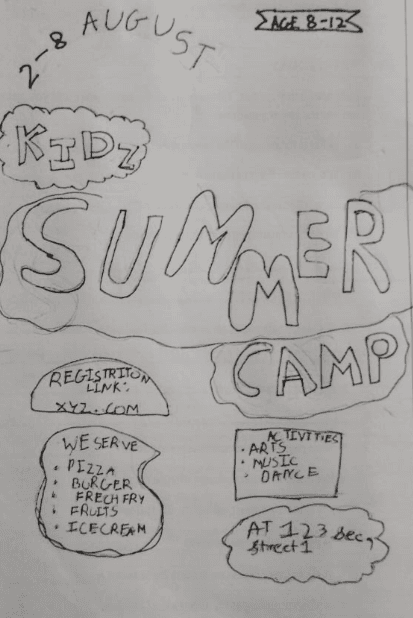 2-8 AUGUST
AGE 8-12
KIDZ
SUMMER
CAMP
REGISTRITON
LINK:
XYZ..COM
WE SERVE
• PIZZA
• BURGER
• FRECH FRY
• FRUITS
• ICECREAM
ACTIVITIES
• ARTS
• MUSIC
• DANCE
AT 123 Sec,
Street 1